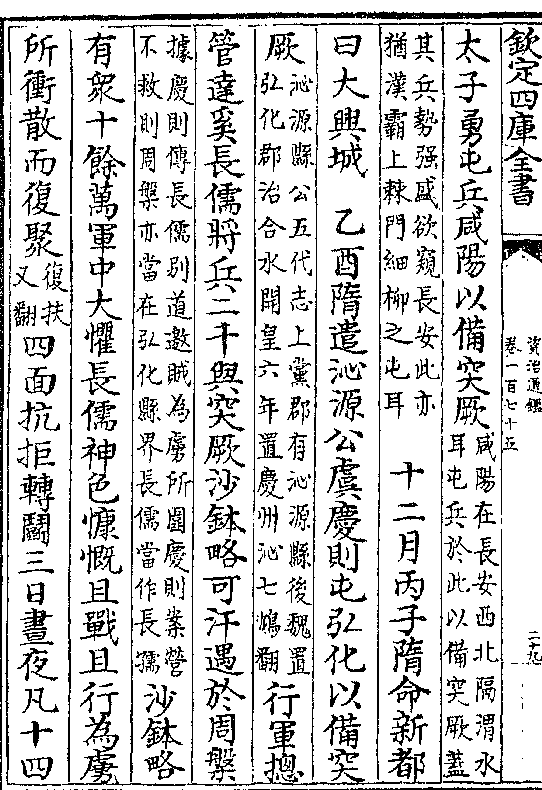 欽定四庫全書
資治通鑑
卷一百七十五
二十九
太子勇屯兵咸陽以備突厥
咸陽在長安西北隔渭水
耳屯兵於此以備突厥蓋
其兵勢强盛欲窺長安此亦
猶漢霸上棘門細柳之屯耳
十二月丙子隋命新都
曰大興城 乙酉隋遣沁源公虞慶則屯弘化以備突
厥
沁源縣公五代志上黨郡有沁源縣後魏置
弘化郡治合水開皇六年置慶州沁七鴆翻
行軍摠
管達奚長儒將兵二千與突厥沙鉢略可汗遇於周槃
據慶則傳長儒别道邀賊為虜所圍慶則案營
不救則周槃亦當在弘化縣界長儒當作長孺
沙鉢略
有衆十餘萬軍中大懼長儒神色慷慨且戰且行為虜
所衝散而復聚
復扶
又翻
四面抗拒轉鬭三日晝夜凡十四